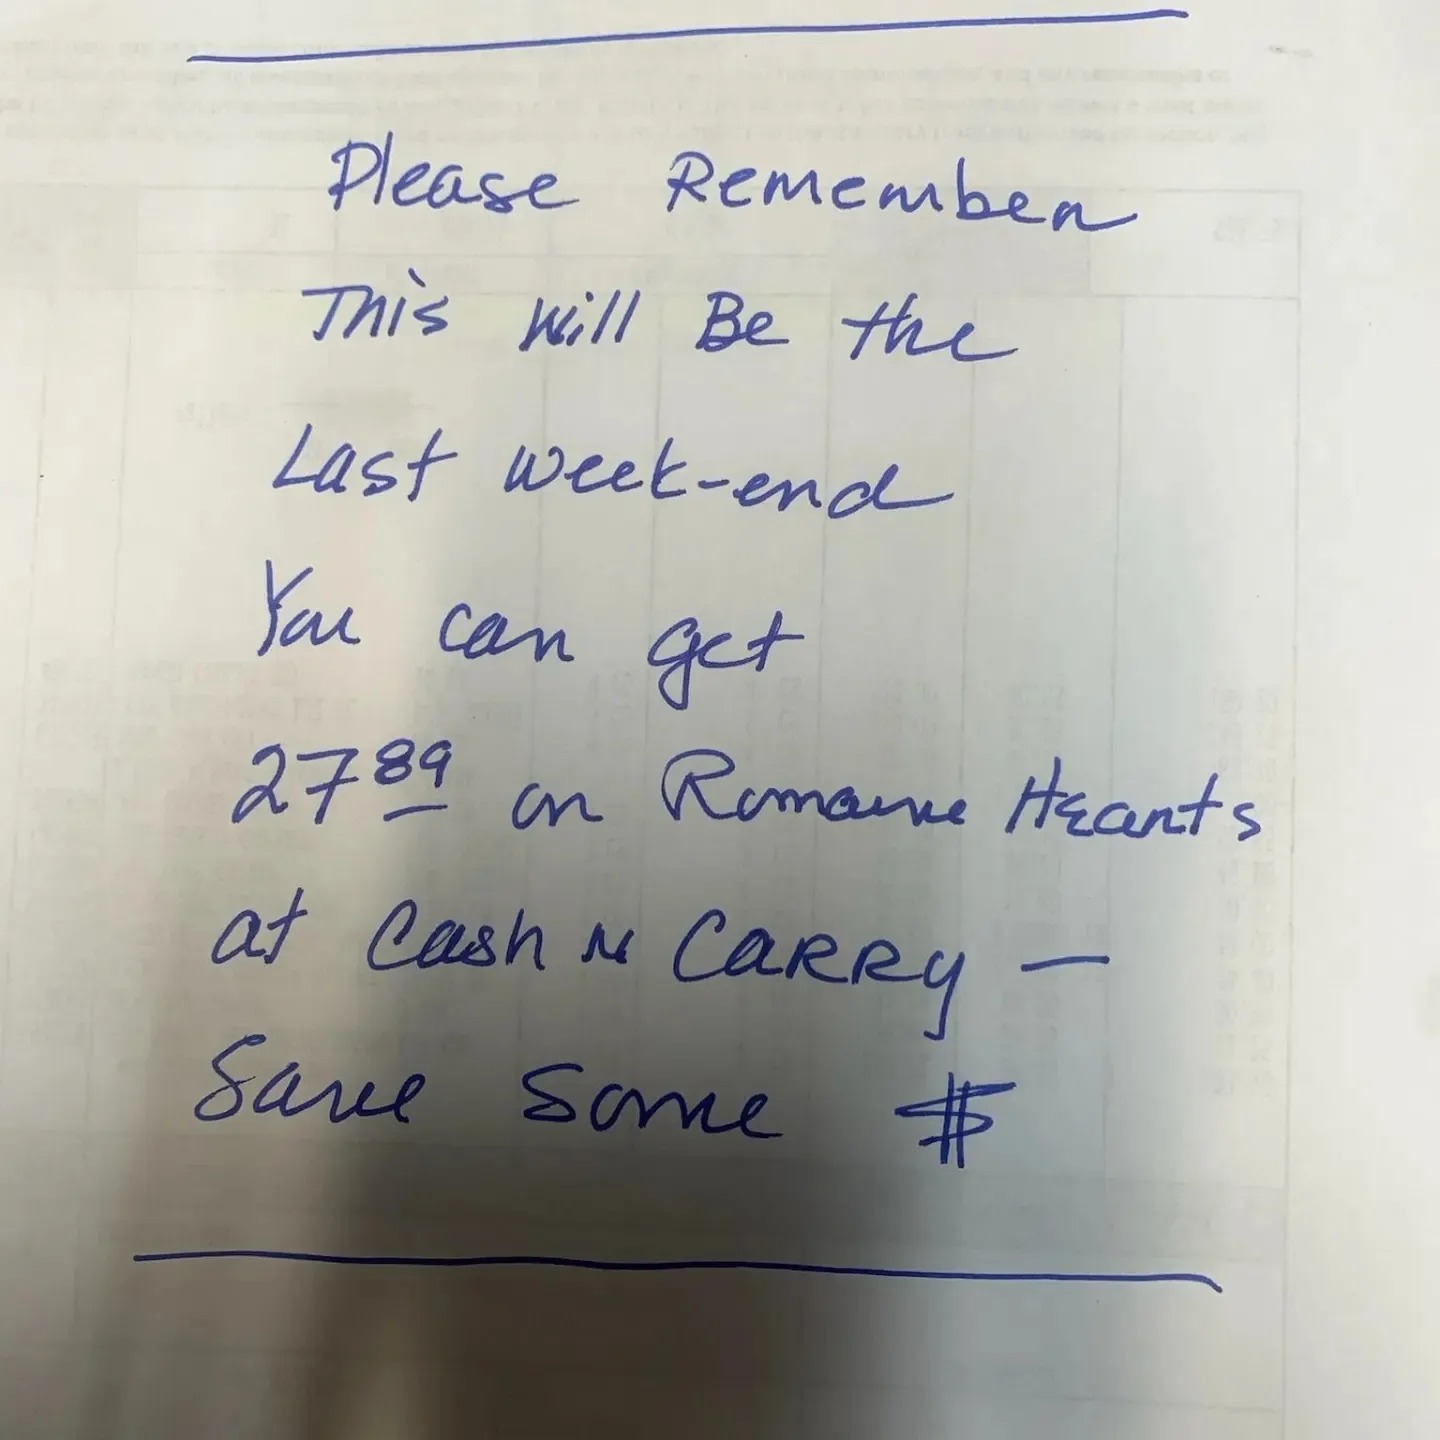 Please Remember
This will Be the
Last week-end
You can get
27 89 on Romaine Hearts
at Cash N Carry —
Save Some $